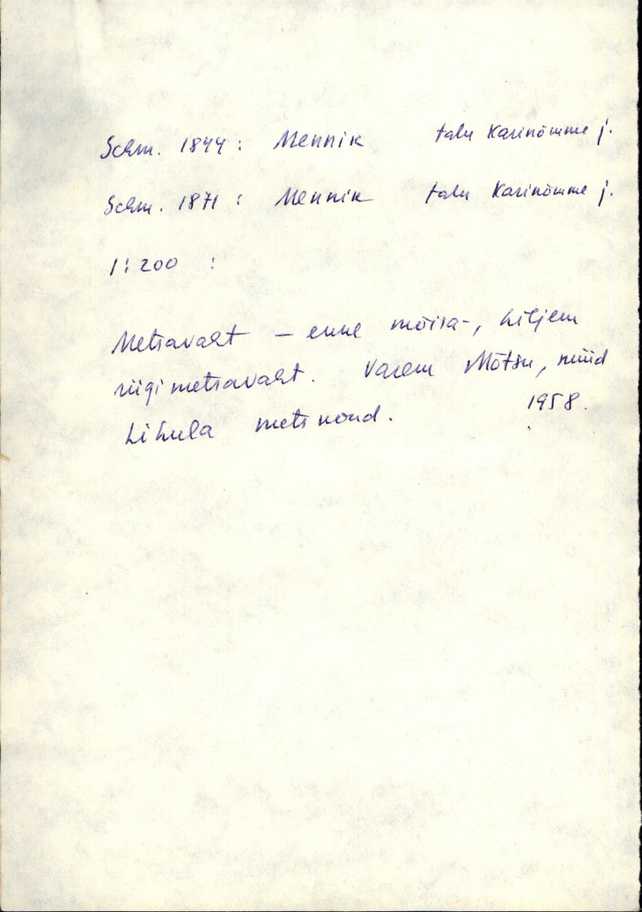 Schm. 1844: Mennik talu Karinõmme j.
Schm. 1871: Mennik talu Karinõmme j.
1:200 :
Metsavaht – enne mõisa-, hiljem
riigimetsavaht. Varem Mõtsu, nüüd
Lihula metskond. 1958.